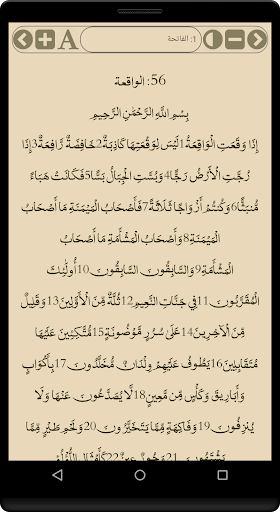 1: الفاتحة
56: الواقعة
بِسْمِ اللَّهِ الرَّحْمَٰنِ الرَّحِيمِ
إِذَا وَقَعَتِ الْوَاقِعَةُ1لَيْسَ لِوَقْعَتِهَا كَاذِبَةٌ2خَافِضَةٌ رَّافِعَةٌ3إِذَا
رُجَّتِ الْأَرْضُ رَجًّا4وَبُسَّتِ الْجِبَالُ بَسًّا5فَكَانَتْ هَبَاءً
مُّنبَثًّا6وَكُنتُمْ أَزْوَاجًا ثَلَاثَةً7فَأَصْحَابُ الْمَيْمَنَةِ مَا أَصْحَابُ
الْمَيْمَنَةِ8وَأَصْحَابُ الْمَشْأَمَةِ مَا أَصْحَابُ
الْمَشْأَمَةِ9وَالسَّابِقُونَ السَّابِقُونَ10أُولَٰئِكَ
الْمُقَرَّبُونَ11فِي جَنَّاتِ النَّعِيمِ12ثُلَّةٌ مِّنَ الْأَوَّلِينَ13وَقَلِيلٌ
مِّنَ الْآخِرِينَ14عَلَىٰ سُرُرٍ مَّوْضُونَةٍ15مُّتَّكِئِينَ عَلَيْهَا
مُتَقَابِلِينَ16يَطُوفُ عَلَيْهِمْ وِلْدَانٌ مُّخَلَّدُونَ17بِأَكْوَابٍ
وَأَبَارِيقَ وَكَأْسٍ مِّن مَّعِينٍ18لَّا يُصَدَّعُونَ عَنْهَا وَلَا
يُنزِفُونَ19وَفَاكِهَةٍ مِّمَّا يَتَخَيَّرُونَ20وَلَحْمِ طَيْرٍ مِّمَّا
يَشْتَهُونَ21وَحُورٌ عِينٌ22كَأَمْثَالِ اللُّؤْلُؤِ